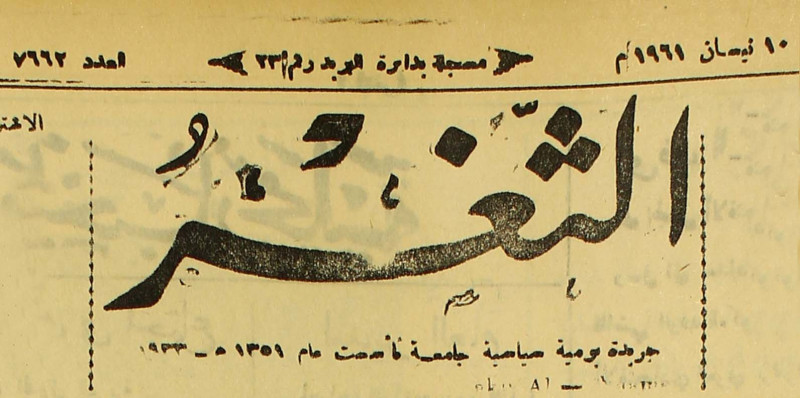 ١٠ نيسان ١٩٦١ م
مسجلة بدائرة البريد رقم ٢٣
العدد ٧٦٦٢
الثَّغْرُ
جريدة يومية سياسية جامعة تأسست عام ١٣٥١ ه ـ ١٩٣٣
Al —